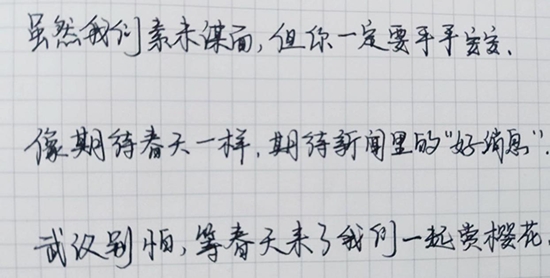 虽然我们素未谋面,但你一定要平平安安.
像期待春天一样,期待新闻里的"好消息".
武汉别怕,等春天来了我们一起赏樱花.